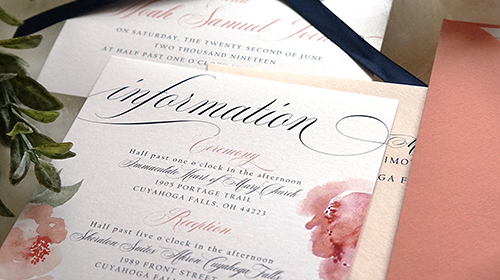 and
Noah Samuel
ON SATURDAY, THE TWENTY SECOND OF JUNE
TWO THOUSAND NINETEEN
AT HALF PAST
information
Ceremony
Half past one o'clock in the afternoon
Immaculate Heart of Mary Church
1905 PORTAGE TRAIL
CUYAHOGA FALLS, OH 44223
Reception
Half past five o'clock in the afternoon
Sheraton Suites Akron Cuyahoga Falls
1989 FRONT STREET
CUYAHOGA FALLS,